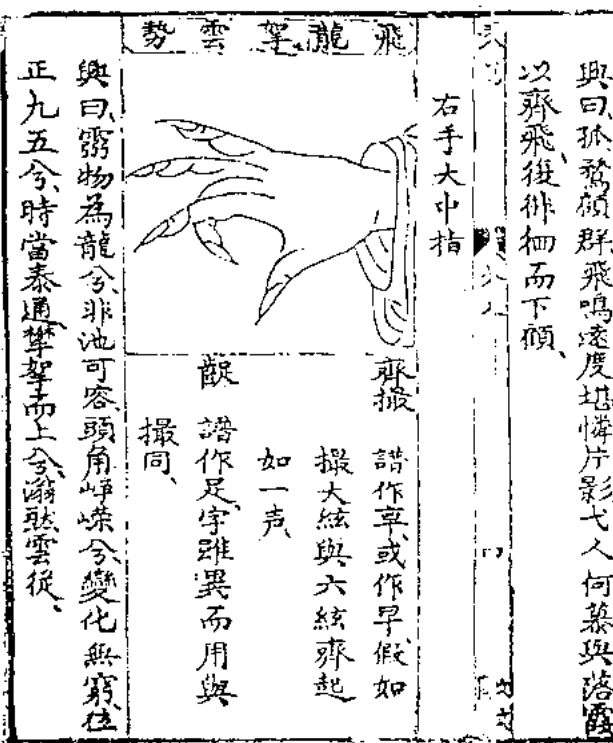 興曰、孤鶩顧群、飛鳴遠度、堪憐片影、弋人何慕、與落霞
以齊飛、復徘徊而下顧、
右手大中指
飛龍拏雲勢
齊撮 譜作早、或作早、假如
撮大絃與六絃齊起
如一声、
齪 譜作足、字雖異而用與
撮同、
興曰、霛物為龍兮、非池可容、頭角崢嶸兮、變化無窮、位
正九五兮、時當泰通、攀拏而上兮、滃然雲從、